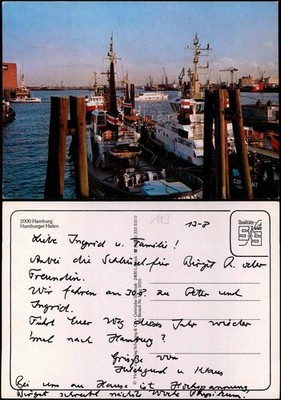 2000 Hamburg
Hamburger Hafen
13-8
Liebe Ingrid u. Familie!
Anbei die Schlüssel für Birgit R. oder
Freundin.
Wir fahren am 30.8. zu Peter und
Ingrid.
Führt Euer Weg dieses Jahr wieder
mal nach Hamburg?
Grüße von
Hildegund u. Klaus
Bei uns zu Hause ist Hochspannung,
Birgit schreibt nächste Woche Physikum.